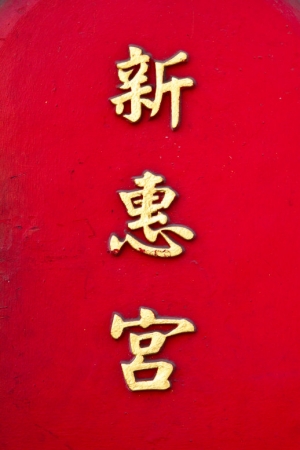 新惠宮